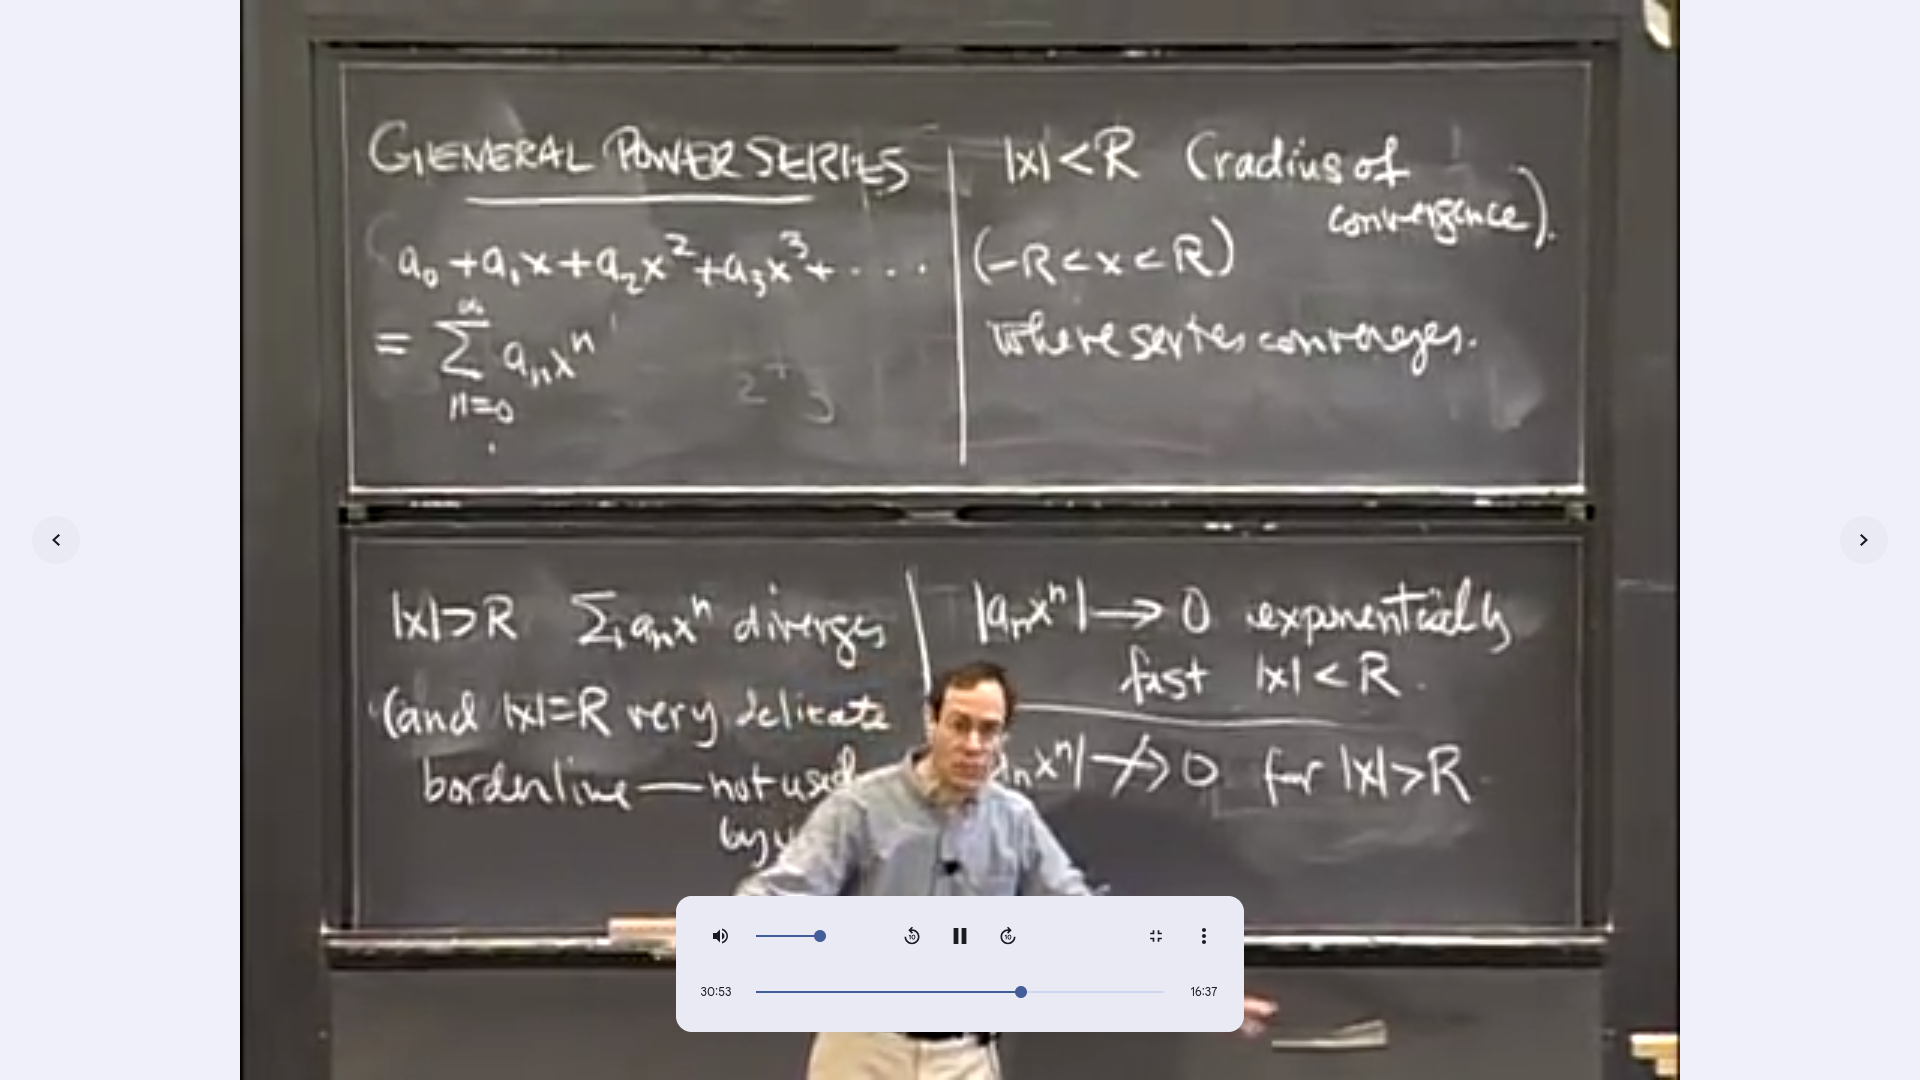 GENERAL POWER SERIES
a₀ + a₁x + a₂x² + a₃x³ + . . . .
= ∑ₙ₌₀^∞ aₙxⁿ
|x| < R (radius of
convergence).
(-R < x < R)
where series converges.
|x| > R ∑ aₙxⁿ diverges
(and |x|=R very delicate
borderline — not used
by
|aₙxⁿ| → 0 exponentially
fast |x| < R.
aₙxⁿ| ↛ 0 for |x| > R.
30:53
16:37